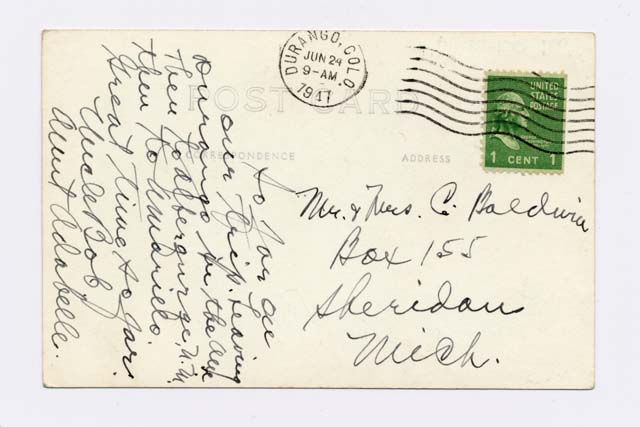 DURANGO, COLO.
JUN 24
9-AM
1941
UNITED
STATES
POSTAGE
1 CENT 1
POST CARD
CORRESPONDENCE
ADDRESS
So far on
our trip. Leaving
Durango in the
Then N.M.
then to Amarillo.
Great time so far.
Uncle Bob
Aunt Adabelle.
Mr. & Mrs. C. Baldwin
Box 155
Sheridan
Mich.